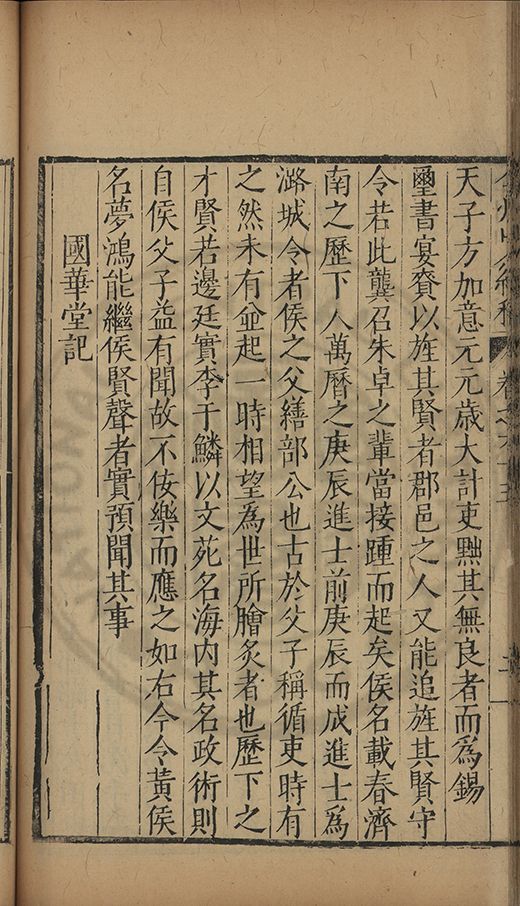 天子方加意元元歲大計吏黜其無良者而爲錫
璽書宴賚以旌其賢者郡邑之人又能追旌其賢守
令若此龔召朱卓之輩當接踵而起矣侯名載春濟
南之歷下人萬曆之庚辰進士前庚辰而成進士爲
潞城令者侯之父繕部公也古於父子稱循吏時有
之然未有並起一時相望為世所膾炙者也歷下之
才賢若邊廷實李于鱗以文苑名海内其名政術則
自侯父子益有聞故不侫樂而應之如右今令黃侯
名夢鴻能繼侯賢聲者實預聞其事
國華堂記